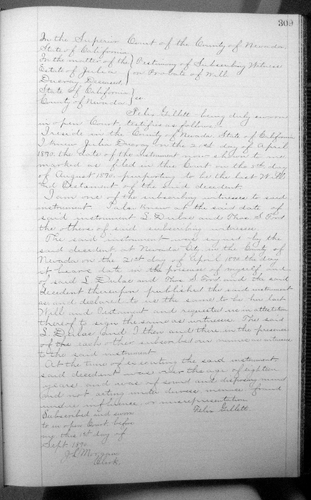 309
In the Superior Court of the County of Nevada
State of California
In the matter of the } Testimony of Subscribing Witness
Estate of Julien } on Probate of Will
Deceased
State of California }
County of Nevada } ss
Felix Gillett being duly sworn
in open Court, testifies as follows:
I reside in the County of Nevada State of California
I knew Julien on the 21st day of April
1890, the date of the Instrument now shown to me
marked as filed in this Court on the day
of August 1890, purporting to be the last Will
and Testament of the said decedent
I am one of the subscribing witnesses to said
instrument I also knew at the said date of
said instrument L. Dulac and Thos S. Ford
the others of said subscribing witnesses.
The said instrument was signed by the
said decedent at Nevada City, in the County of
Nevada on the 21st day of April 1890 the day
it bears date in the presence of myself and
of said L Dulac and Thos S. Ford and the said
decedent thereupon published the said instrument
as and declared to us the same to be last
Will and Testament and requested us to attest
thereof to sign the same as witnesses. The said
L. Dulac and I then and there in the presence
of the each other subscribed our names as witnesses
to the said instrument
At the time of executing the said instrument
said decedent was over the age of eighteen
years and was of sound and disposing mind
and not acting under duress menace fraud
undue influence or misrepresentation
Subscribed and sworn Felix Gillett
to in open Court before
me this 1st day of
Sept 1890
Morgan
Clerk.